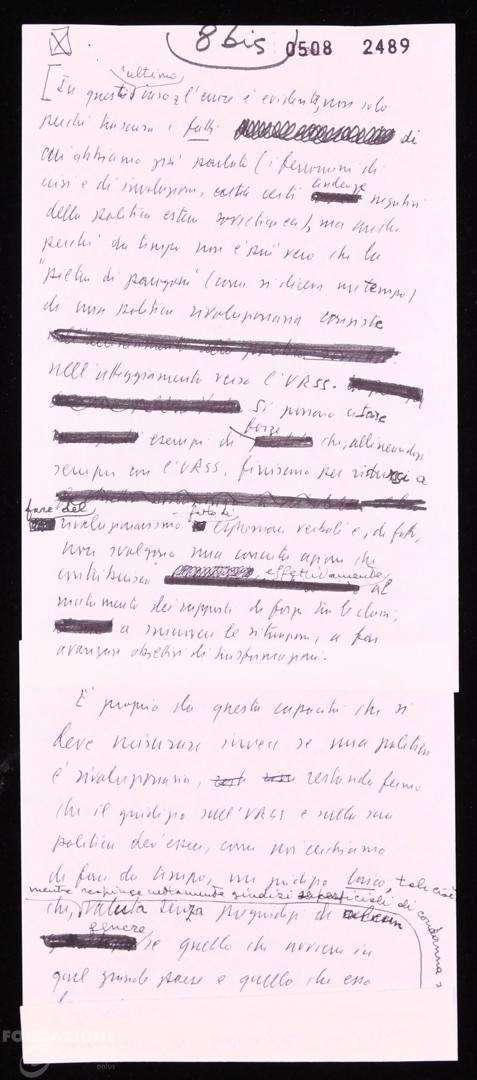 8 bis 0508 2489
ultimo
[In questo caso, l'errore è evidente, non solo
perché trascura i fatti di
cui abbiamo già parlato (i fenomeni di
crisi e di involuzione, certi tendenze negativi
della politica estera sovietica ecc.), ma anche
perché da tempo non è più vero che la
"pietra di paragone" (come si diceva un tempo)
di una politica rivoluzionaria consiste
nell'atteggiamento verso l'URSS.
Si possono citare
esempi di forze che, allineandosi
sempre con l'URSS, finiscono per ridursi a
fare del
rivoluzionarismo fatto di espressioni verbali e, di fatto,
non svolgono una concreta azione che
contribuisca effettivamente al
mutamento dei rapporti di forza tra le classi,
a smuovere le situazioni, a far
avanzare obiettivi di trasformazione.
È proprio da questa capacità che si
deve misurare invece se una politica
è rivoluzionaria, restando fermo
che il giudizio sull'URSS e sulla sua
politica dev'essere, come noi cerchiamo
di fare da tempo, un giudizio laico, tale cioè
mente respinge nettamente giudizi di condanna
che, valuta senza pregiudizi di
genere
se quello che avviene in
quel grande paese e quello che esso
FONDAZIONE
onlus